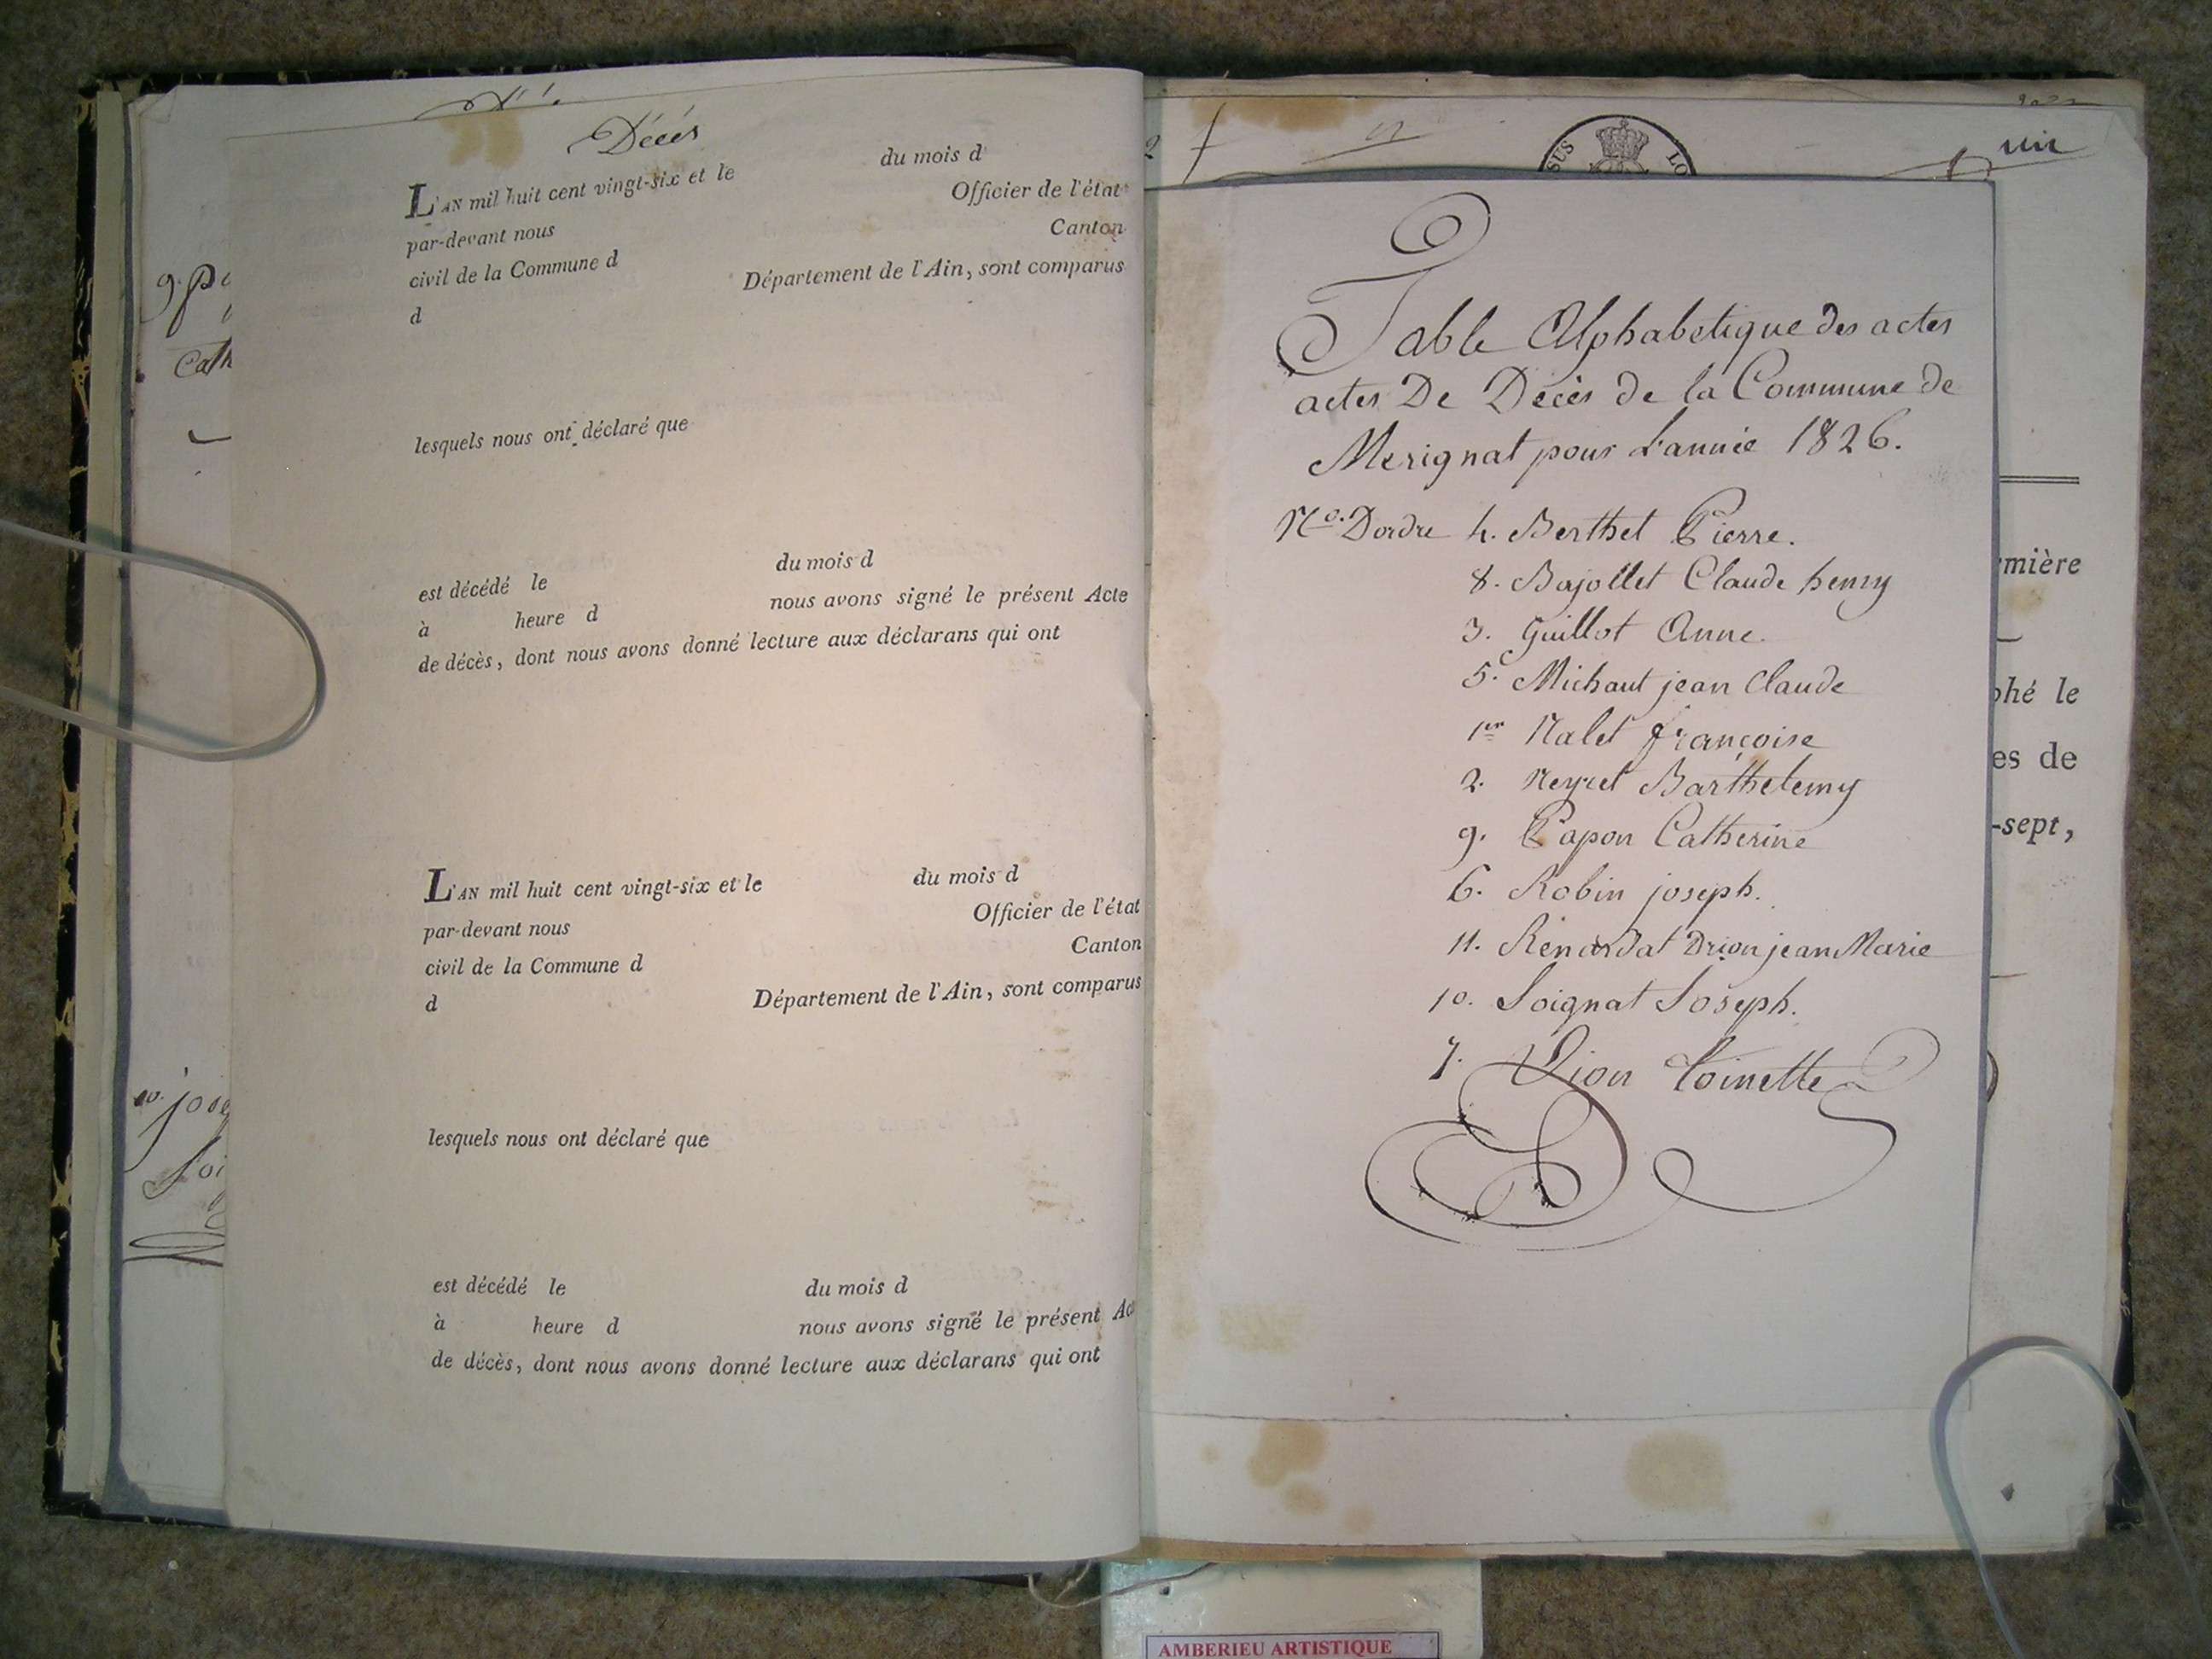 Décès
L'AN mil huit cent vingt-six et le du mois d
par-devant nous Officier de l'état
civil de la Commune d Canton
d Département de l'Ain, sont comparus
lesquels nous ont déclaré que
est décédé le du mois d
à heure d nous avons signé le présent Acte
de décès, dont nous avons donné lecture aux déclarans qui ont
L'AN mil huit cent vingt-six et le du mois d
par-devant nous Officier de l'état
civil de la Commune d Canton
d Département de l'Ain, sont comparus
lesquels nous ont déclaré que
est décédé le du mois d
à heure d nous avons signé le présent Ac
de décès, dont nous avons donné lecture aux déclarans qui ont
9. pa
Cath
10. jose
Soi
un
SUS LO
Table Alphabetique des actes
actes De Décès de la Commune de
Merignat pour L'année 1826.
No. Dordre 4. Berthet Pierre.
8. Bajollet Claude henry
3. Guillot Anne.
5. Michaut jean Claude
1er Nalet françoise
2. Neyret Barthelemy
9. Papon Catherine
6. Robin joseph.
11. Renardat Drion jean Marie
10. Soignat Joseph.
7. Vion toinette
mière
phé le
es de
-sept,
AMBERIEU ARTISTIQUE